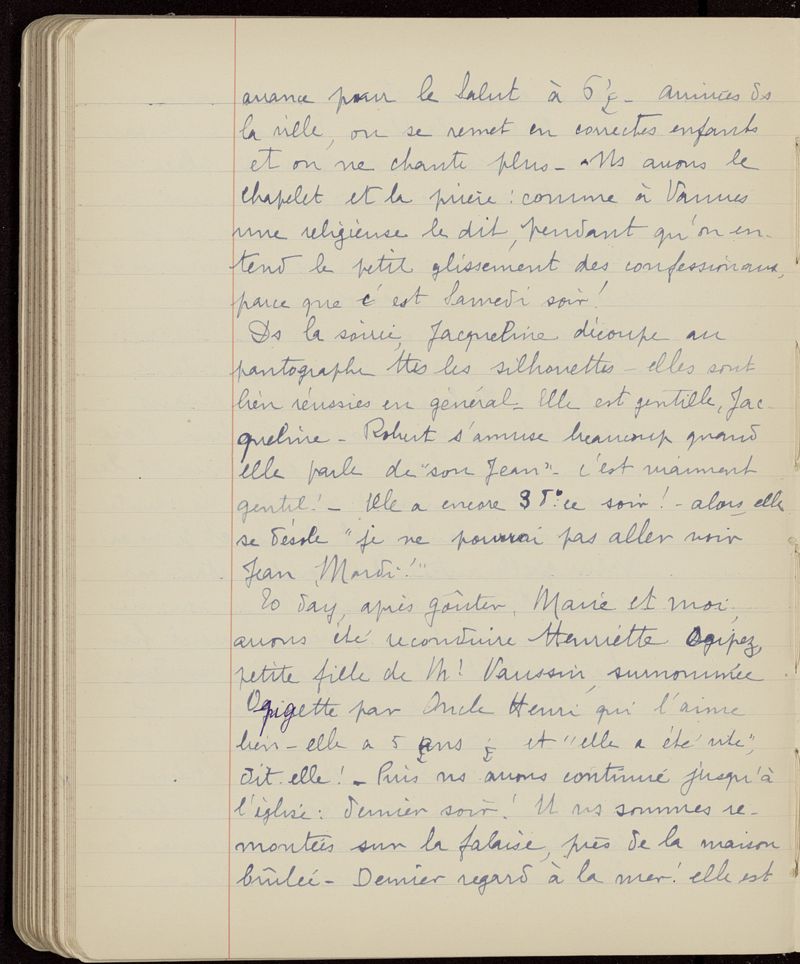 avance pour le Salut à 6 ½ - arrivées ds
la ville, on se remet en correctes enfants
et on ne chante plus - Ns avons le
chapelet et la prière : comme à Vannes
une religieuse le dit, pendant qu'on en-
tend le petit glissement des confessionaux,
parce que c'est Samedi soir !
Ds la soirée, Jacqueline découpe au
pantographe ttes les silhouettes - elles sont
bien réussies en général - Elle est gentille, Jac-
queline - Robert s'amuse beaucoup quand
elle parle de "son Jean" - c'est vraiment
gentil ! - Elle a encore 38° ce soir ! - alors, elle
se désole "je ne pourrai pas aller voir
Jean, Mardi !"
To day, après goûter, Marie et moi,
avons été reconduire Henriette
petite fille de Mr Vaussin, surnommée
Ogigette par Oncle Henri qui l'aime
bien - elle a 5 ans ½ et "elle a été vite",
dit-elle ! - Puis ns avons continué jusqu'à
l'église : dernier soir ! Et ns sommes re-
montées sur la falaise, près de la maison
brûlée - Dernier regard à la mer ! elle est